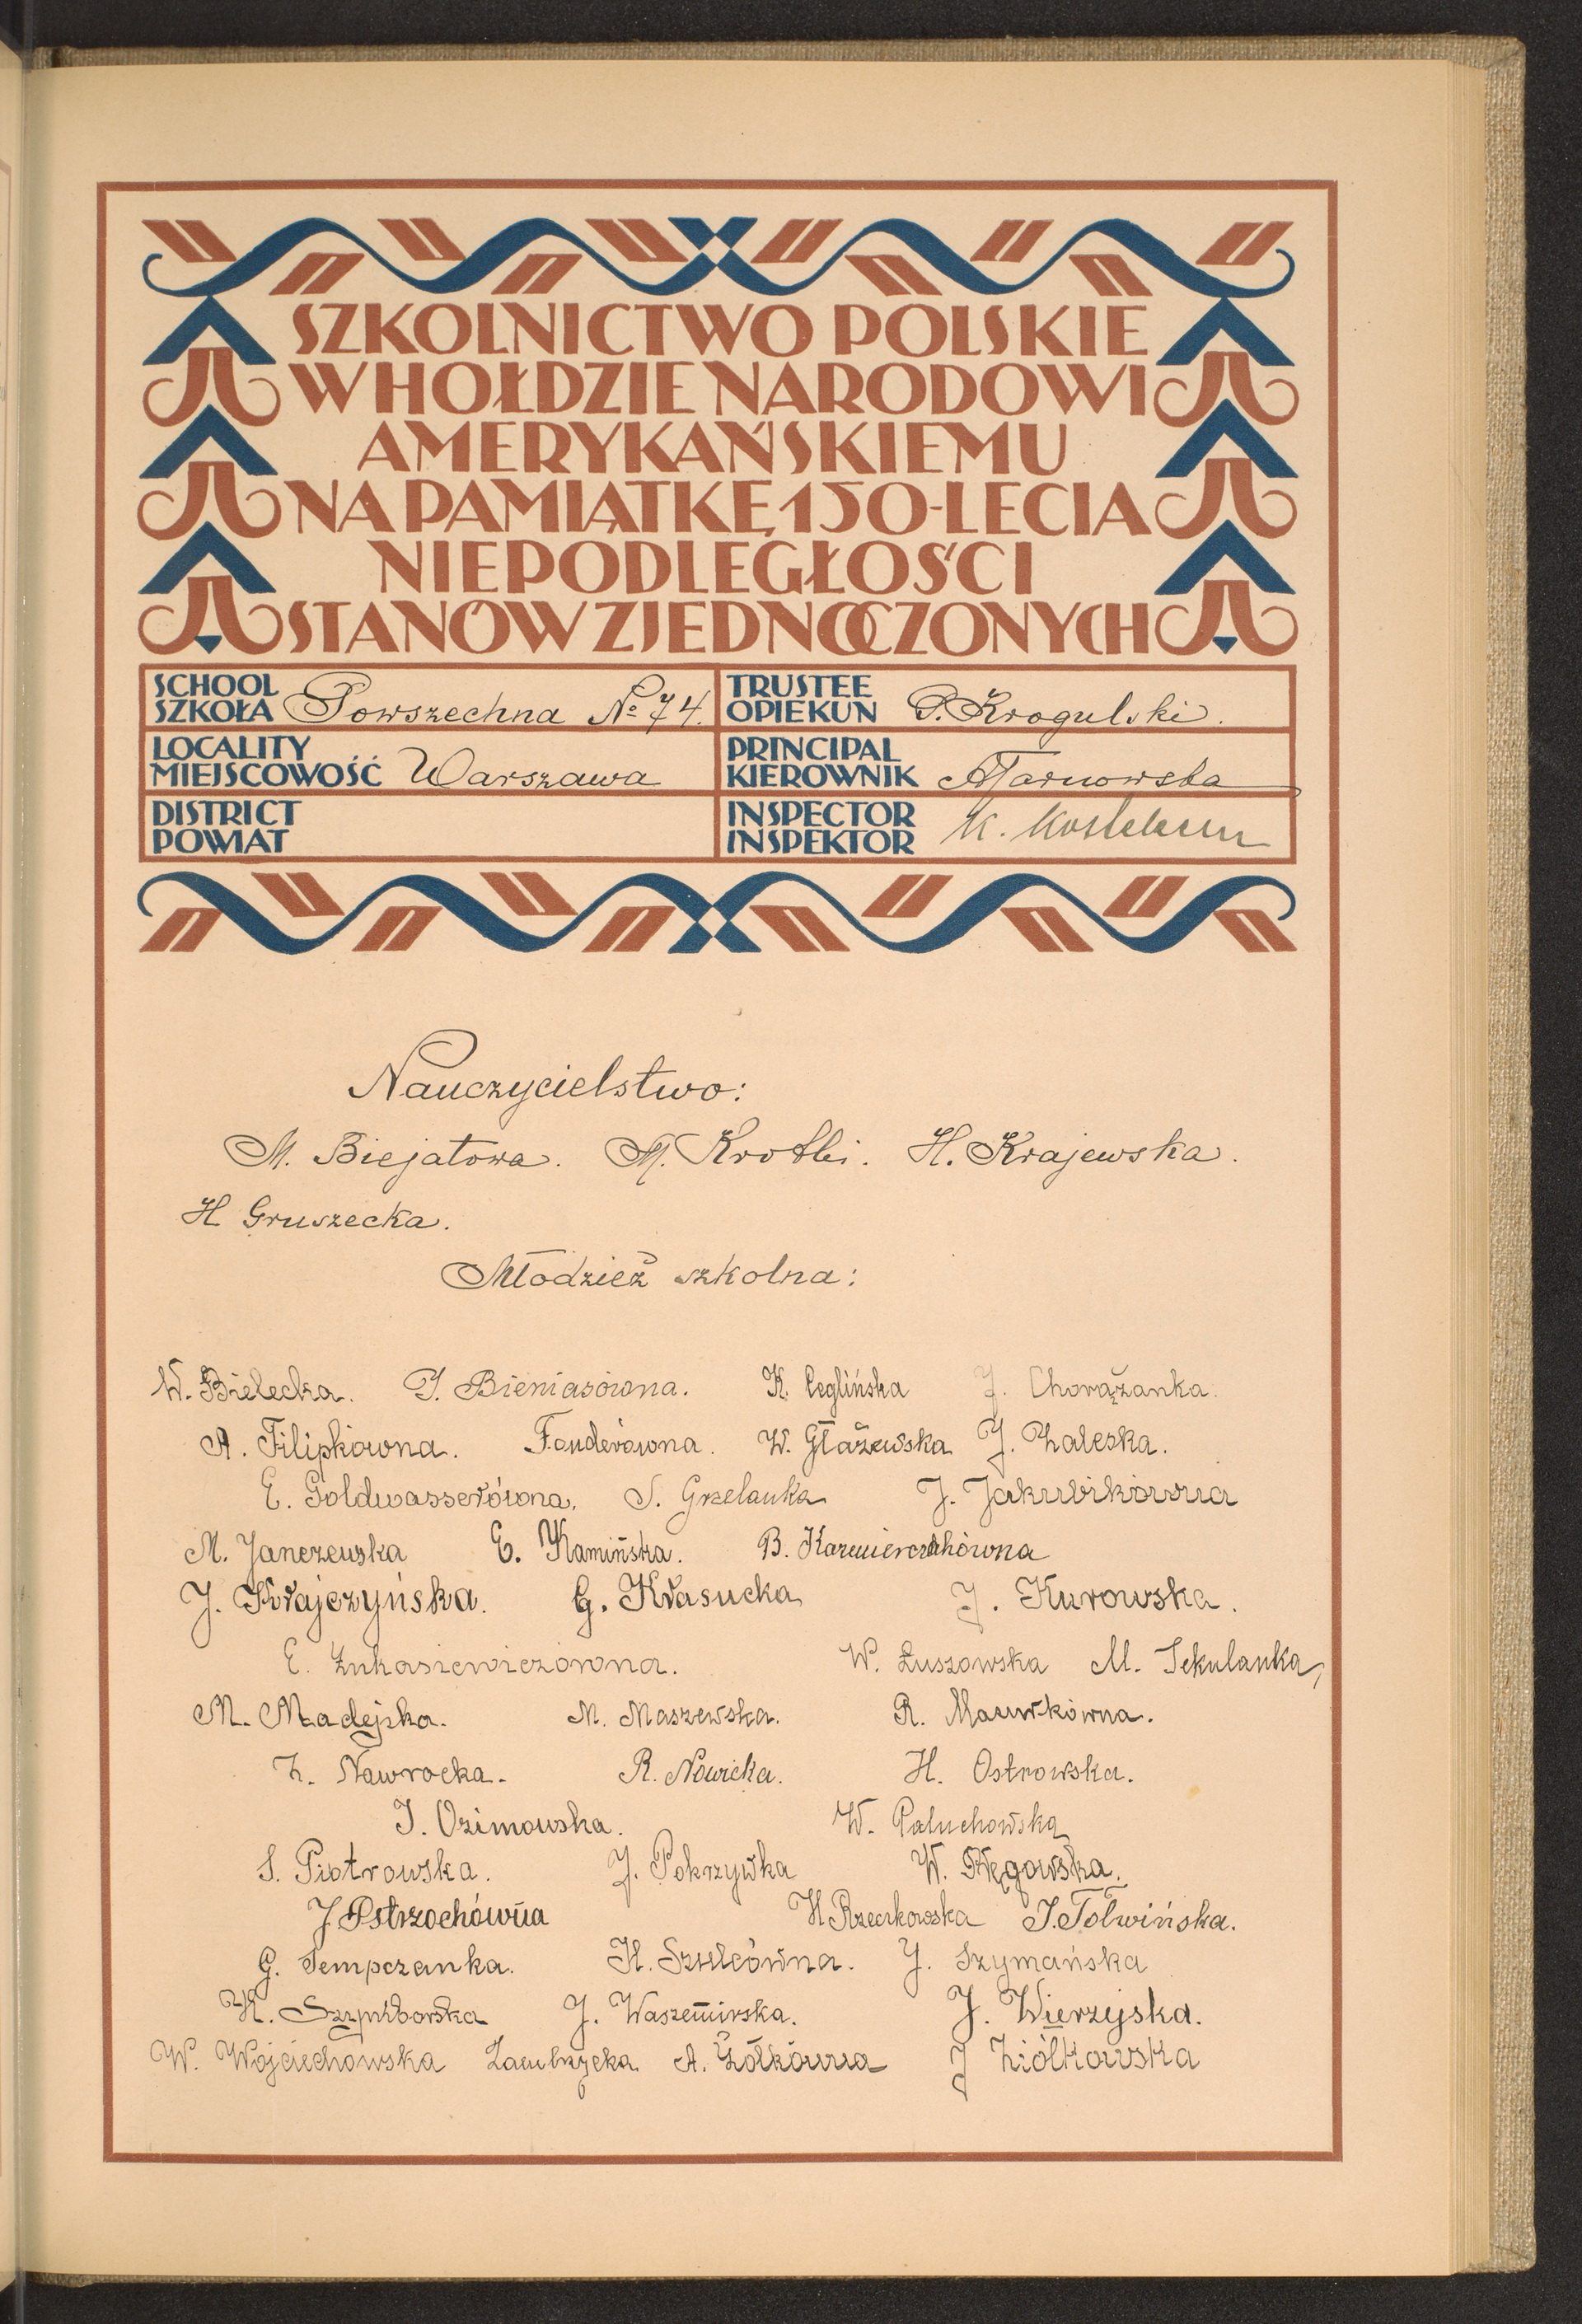 SZKOLNICTWO POLSKIE
W HOŁDZIE NARODOWI
AMERYKAŃSKIEMU
NA PAMIĄTKĘ 150-LECIA
NIEPODLEGŁOŚCI
STANÓW ZJEDNOCZONYCH
SCHOOL
SZKOŁA Powszechna № 74.
TRUSTEE
OPIEKUN P. Krogulski.
LOCALITY
MIEJSCOWOŚĆ Warszawa
PRINCIPAL
KIEROWNIK ATarnowska
DISTRICT
POWIAT
INSPECTOR
INSPEKTOR K.
Nauczycielstwo:
M. Biejatowa. M. Krotki. H. Krajewska.
H Gruszecka.
Młodzież szkolna:
W. Bielecka. J. Bieniasówna. K. Ceglińska J. Chorążanka.
A. Filipkówna. Fonderówna. W. Głażewska J. Zaleska.
E. Goldwasserówna, S. Grzelanka J. Jakubikówna
M. Janczewska E. Kamińska. B. Kazmierczakówna
J. Krajczyńska. G. Krasucka J. Kurowska.
E. Łukasiewiczówna. W. Łuszowska M. Sekulanka,
M. Madejska. M. Maszewska. R.
Z. Nawrocka. R. Nowicka. H. Ostrowska.
J. Ozimowska. W. Paluchowska
S. Piotrowska. J. Pokrzywka W. Ręgowska.
J Pstrzochówna H Rzeczkowska J. Tołwińska.
G. Tempczanka. H. Szulcówna. J. Szymańska
K. J. J. Wierzejska.
W. Wojciechowska Zambrzycka A. Żółkówna J Ziółkowska